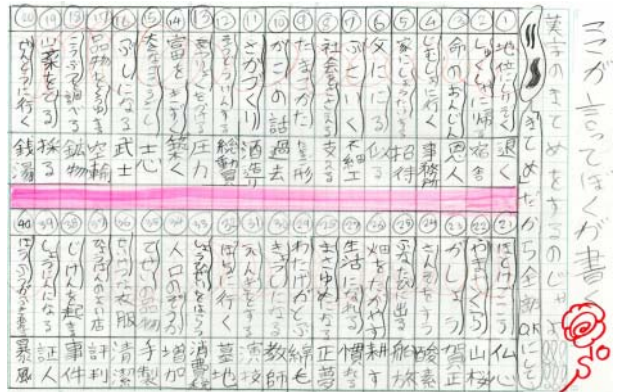 ここが言ってぼくが書く
漢字のまとめをするのじゃ
「まとめ」だから全部OKにして
① 地位にしりぞく 退く
② しゅくしゃに帰る 宿舎
③ 命のおんじん 恩人
④ じむしょに行く 事務所
⑤ 家にしょうたいする 招待
⑥ 父ににる 似る
⑧ 社会をささえる 支える
⑩ がこの話 過去
⑪ さかづくり 酒造り
⑫ そうどういんする 総動員
⑬ 圧力
⑭ 富をきずく 築く
⑮ 士心
⑯ ぶしになる 武士
⑰ 品物をくうゆ 空輸
⑱ こうぶつを調べる 鉱物
⑲ 山菜をとる 採る
⑳ せんとうに行く 銭湯
㉑ ほとけごころ 仏心
㉒ やまざくら 山桜
㉓ がしょう 賀正
㉔ さんそをすう 酸素
㉕ ふなたびに出る 船旅
㉖ 畑をたがやす 耕す
㉗ 生活になれる 慣れる
㉘ まさゆめになる 正夢
㉙ わたげがとぶ 綿毛
㉚ きょうしになる 教師
㉛ えんぎをする 演技
㉜ ぼちに行く 墓地
㉝ しょうひぜいをはらう 消費税
㉞ 人口のぞうか 増加
㉟ てせいの品物 手製
㊱ せいけつな衣服 清潔
㊲ ひょうばんのよい店 評判
㊳ じけんが起きる 事件
㊴ しょうにんになる 証人
㊵ ぼうふう 暴風